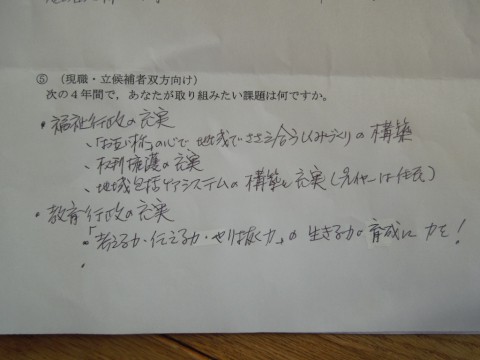 ⑤ (現職・立候補者双方向け)
次の4年間で、あなたが取り組みたい課題は何ですか。
・福祉行政の充実
、「お互い様」の心で 地域でささえ合うしくみづくりの 構築
、権利擁護の充実
、地域包括ケアシステムの 構築と充実(プレイヤーは住民)
・教育行政の充実
・「考える力・伝える力・やり抜く力」の 生きる力の育成に 力を!